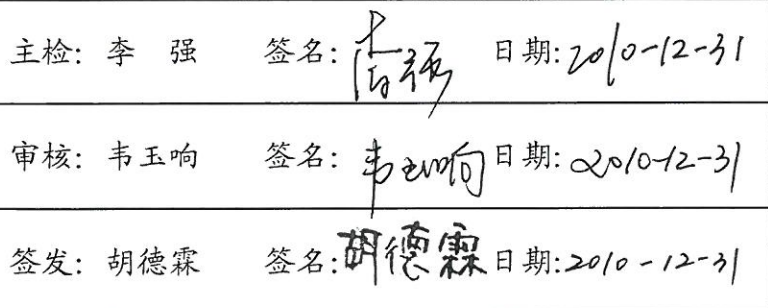 主检：李 强 签名：李强 日期：2010-12-31
审核：韦玉响 签名：韦玉响 日期：2010-12-31
签发：胡德霖 签名：胡德霖 日期：2010-12-31